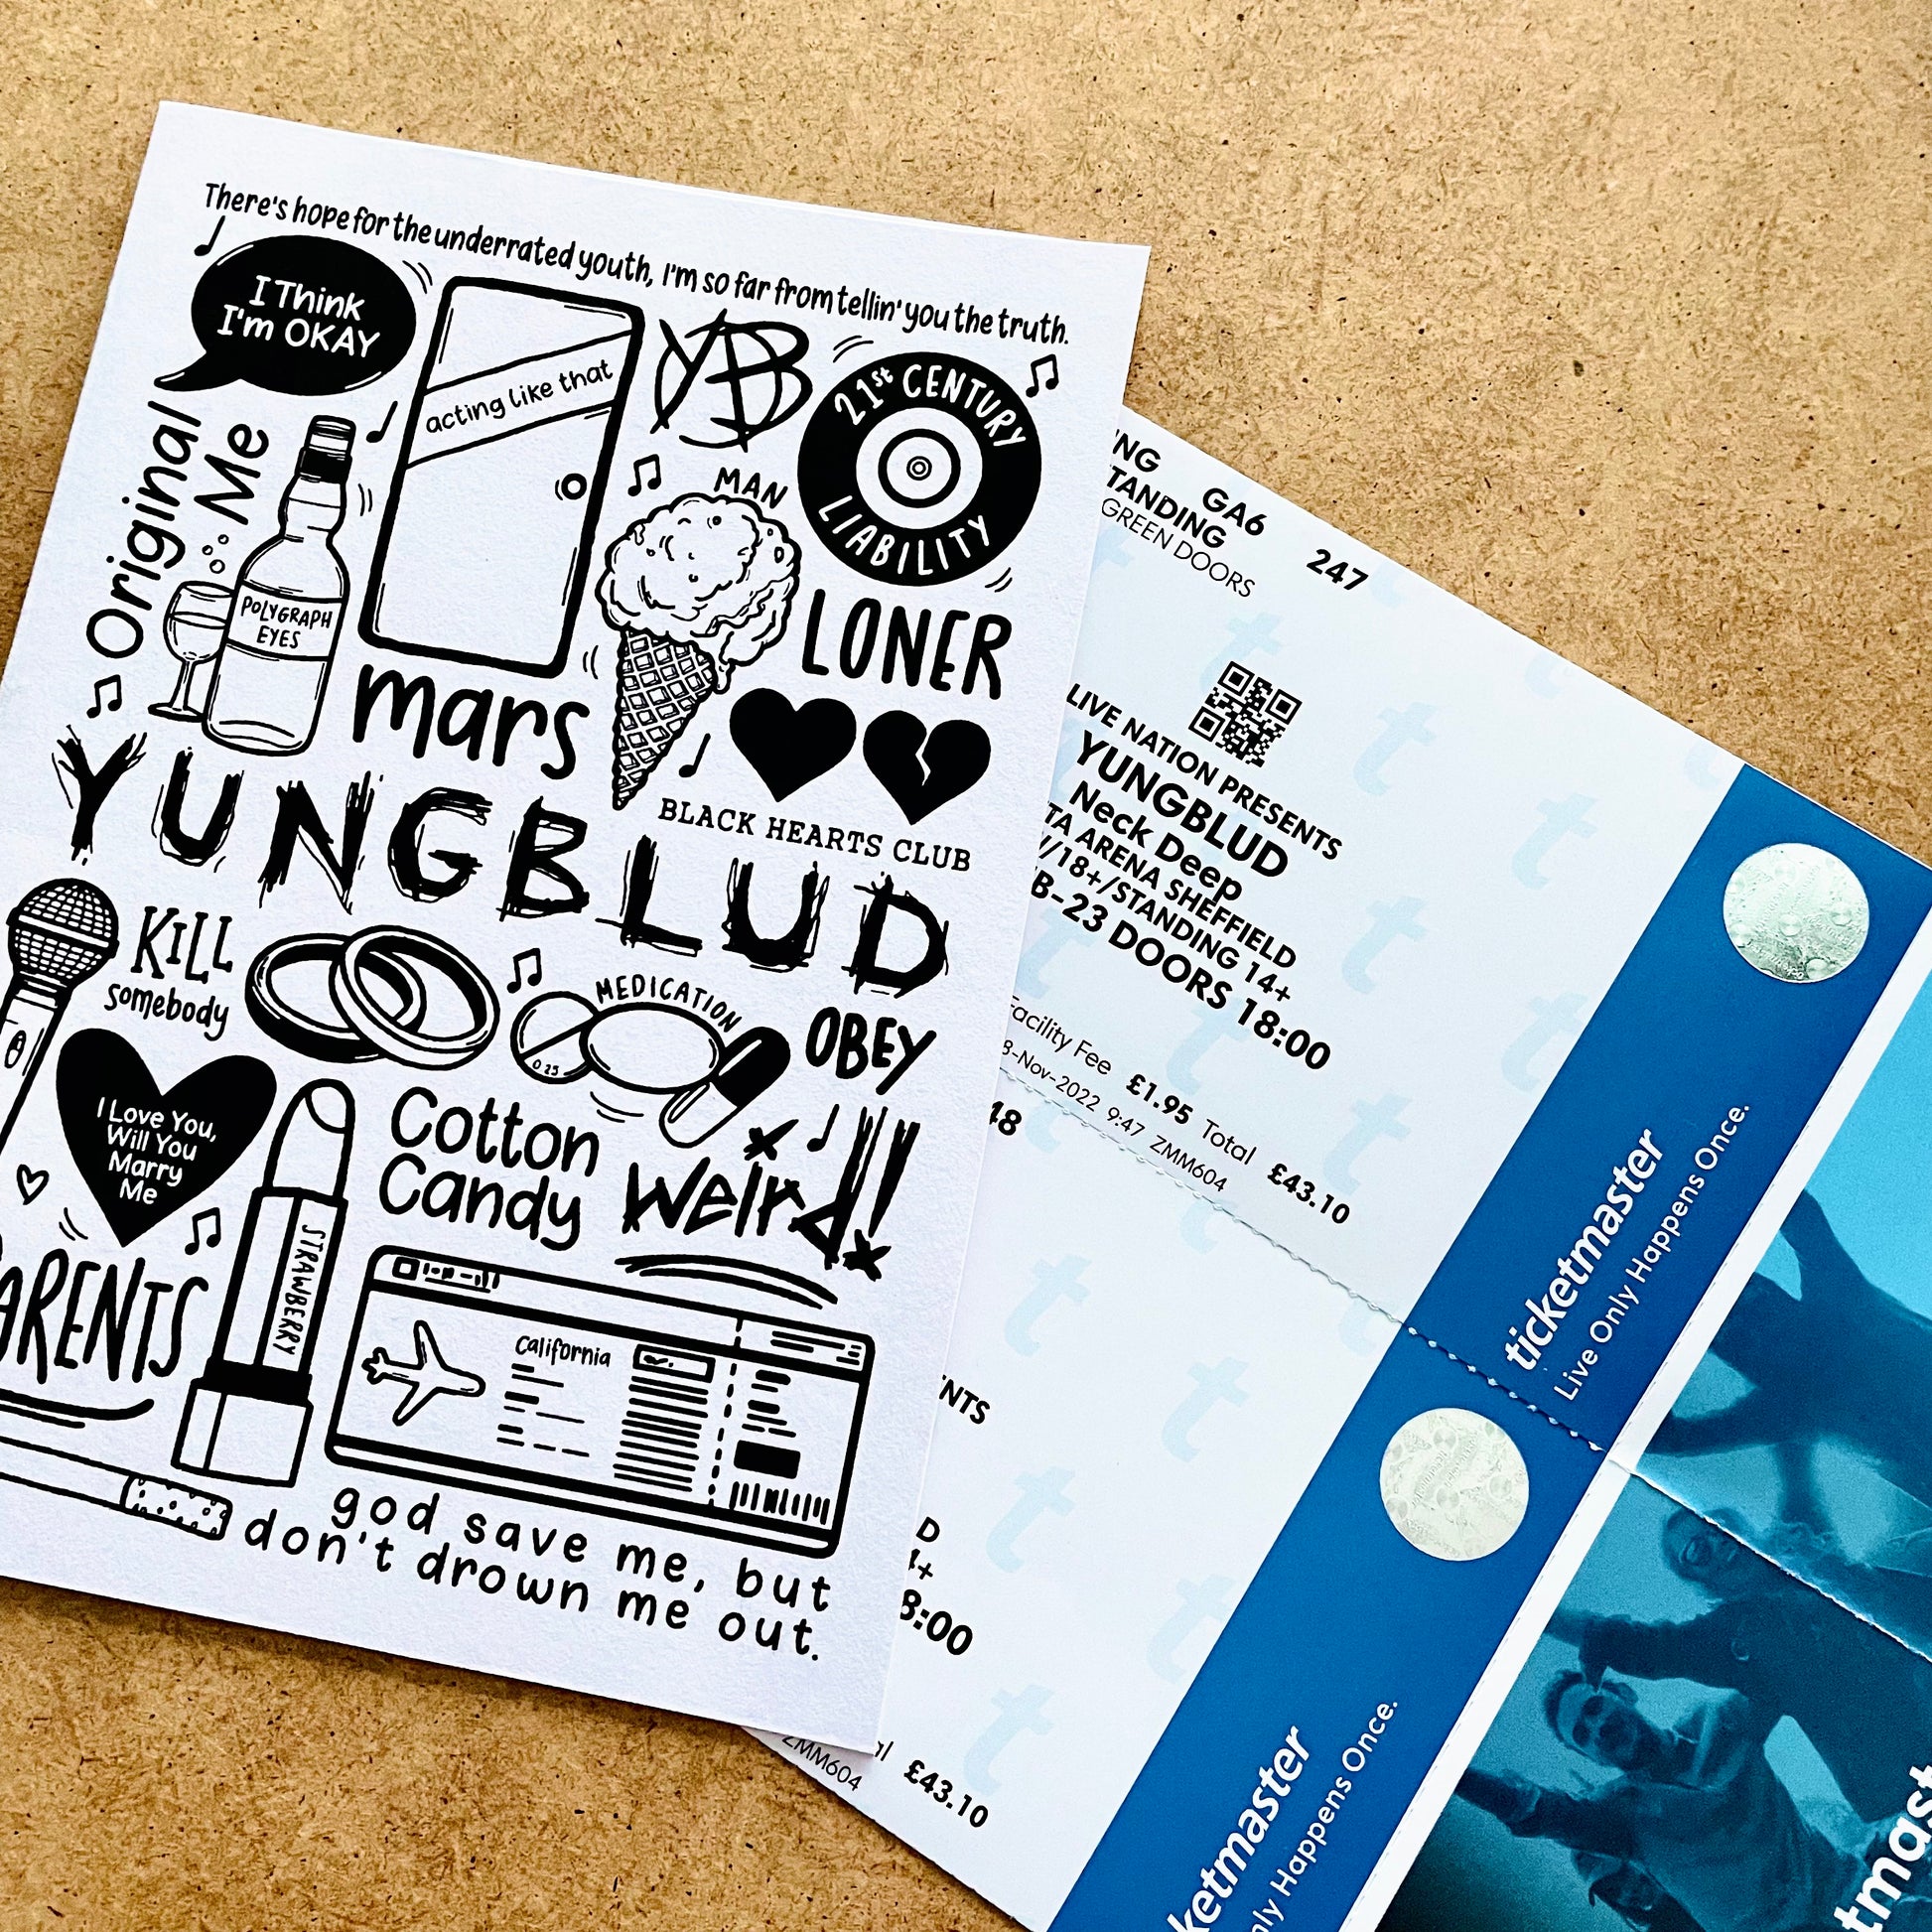 There's hope for the underrated youth, I'm so far from tellin' you the truth.
I Think
I'm OKAY
acting like that
YB
21st CENTURY
LIABILITY
Original
Me
POLYGRAPH
EYES
MAN
LONER
mars
BLACK HEARTS CLUB
YUNGBLUD
KILL
somebody
MEDICATION
0.25
OBEY
I Love You,
Will You
Marry
Me
Cotton
Candy
Weird!
ARENTS
STRAWBERRY
California
god save me, but
don't drown me out.
NG GA6 247
TANDING
GREEN DOORS
LIVE NATION PRESENTS
YUNGBLUD
Neck Deep
TA ARENA SHEFFIELD
/18+/STANDING 14+
B-23 DOORS 18:00
Facility Fee £1.95 Total £43.10
8-Nov-2022 9:47 ZMM604
48
NTS
D
4+
8:00
al £43.10
ZMM604
ticketmaster
Live Only Happens Once.
ketmaster
nly Happens Once.
tmast